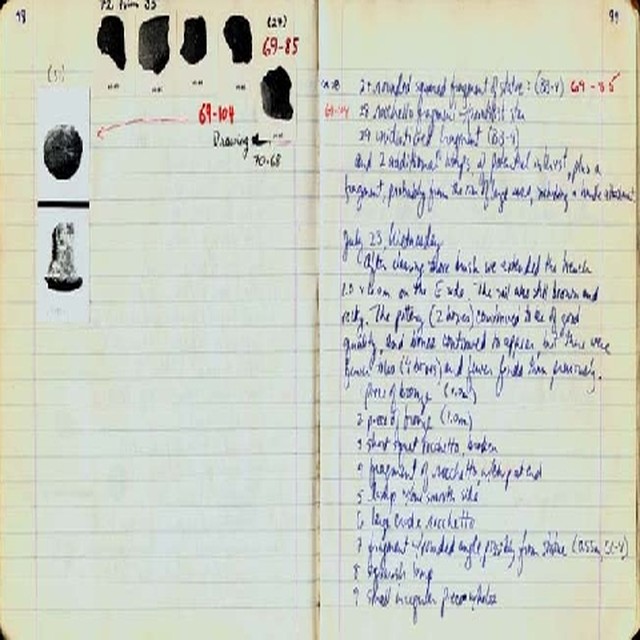 98
(24)
69-85
(5)
69-104
Drawing
70-68
99
27 rounded squared fragment of statue: (BB-4) 69-85
69-104 28 rocchetto fragment
29 unidentified fragment (BB-4)
and 2 additional lumps of potential interest, plus a
fragment, probably from the rim of large vessel, including a handle attachment.
July 23, Wednesday
After clearing more brush we extended the trench
on the E side. The soil was still brown and
rocky. The pottery (2 boxes) continued to be of good
quality, and bones continued to appear but there were
fewer tiles (4 boxes) and fewer finds than previously.
piece of bronze
2 piece of bronze (1.0m)
3 short squat rocchetto, broken
4 fragment of rocchetto
5 lump w/one smooth side
6 large crude rocchetto
7 fragment w/rounded angle possibly from statue
8 lump
9 small irregular piece